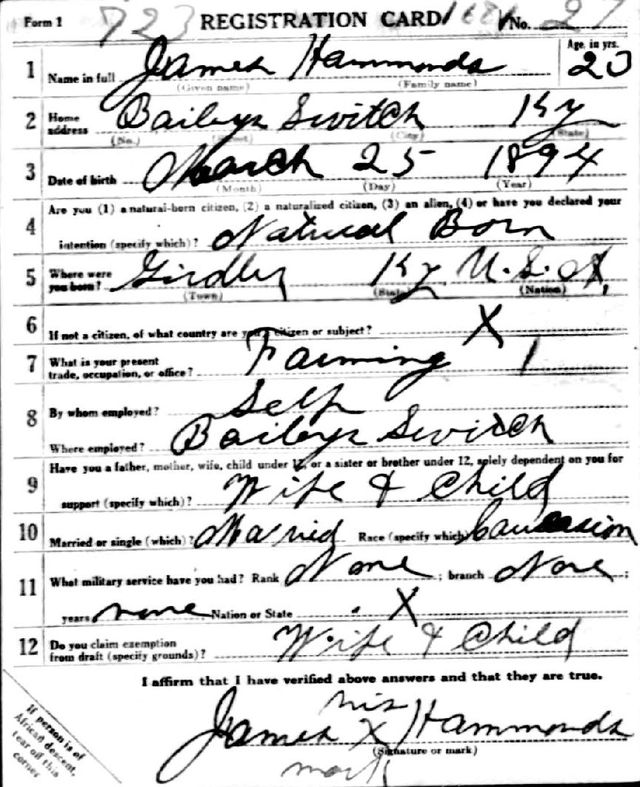 Form 1 723 REGISTRATION CARD No. 27
1 Name in full James Hammonds Age, in yrs. 23
(Given name) (Family name)
2 Home address Baileys Switch Ky
(No.) (Street) (City) (State)
3 Date of birth March 25 1894
(Month) (Day) (Year)
4 Are you (1) a natural-born citizen, (2) a naturalized citizen, (3) an alien, (4) or have you declared your
intention (specify which)? Natural Born
5 Where were you born? Girdler Ky U.S.A,
(Town) (State) (Nation)
6 If not a citizen, of what country are you a citizen or subject? X
7 What is your present trade, occupation, or office? Farming 1
8 By whom employed? Self
Where employed? Baileys Switch
9 Have you a father, mother, wife, child under 12, or a sister or brother under 12, solely dependent on you for
support (specify which)? Wife & Child
10 Married or single (which)? Married Race (specify which) Caucasion
11 What military service have you had? Rank None ; branch None ;
years none Nation or State X
12 Do you claim exemption from draft (specify grounds)? Wife & Child
I affirm that I have verified above answers and that they are true.
his
James X Hammonds
(Signature or mark)
mark
If person is of
African descent,
tear off this
corner